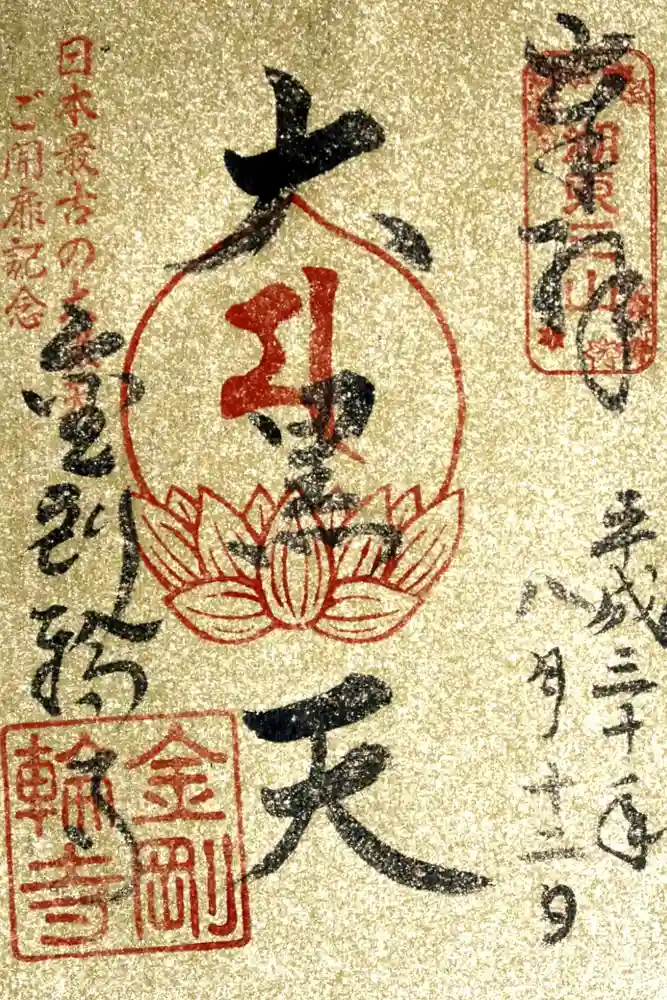 奉拝
湖東三山
平成三十年
八月十二日
大黒天
金剛輪寺
金剛
輪寺
日本最古の大黒天
ご開扉記念